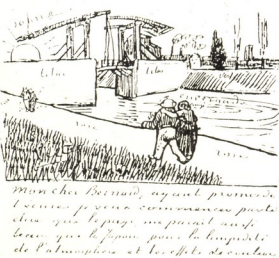 lilas
lilas
émeraude
mon cher Bernard, ayant promis de
t'écrire je veux commencer par te
dire que le pays me parait aussi
beau que le Japon pour la limpidité
de l'atmosphère et les effets de couleur